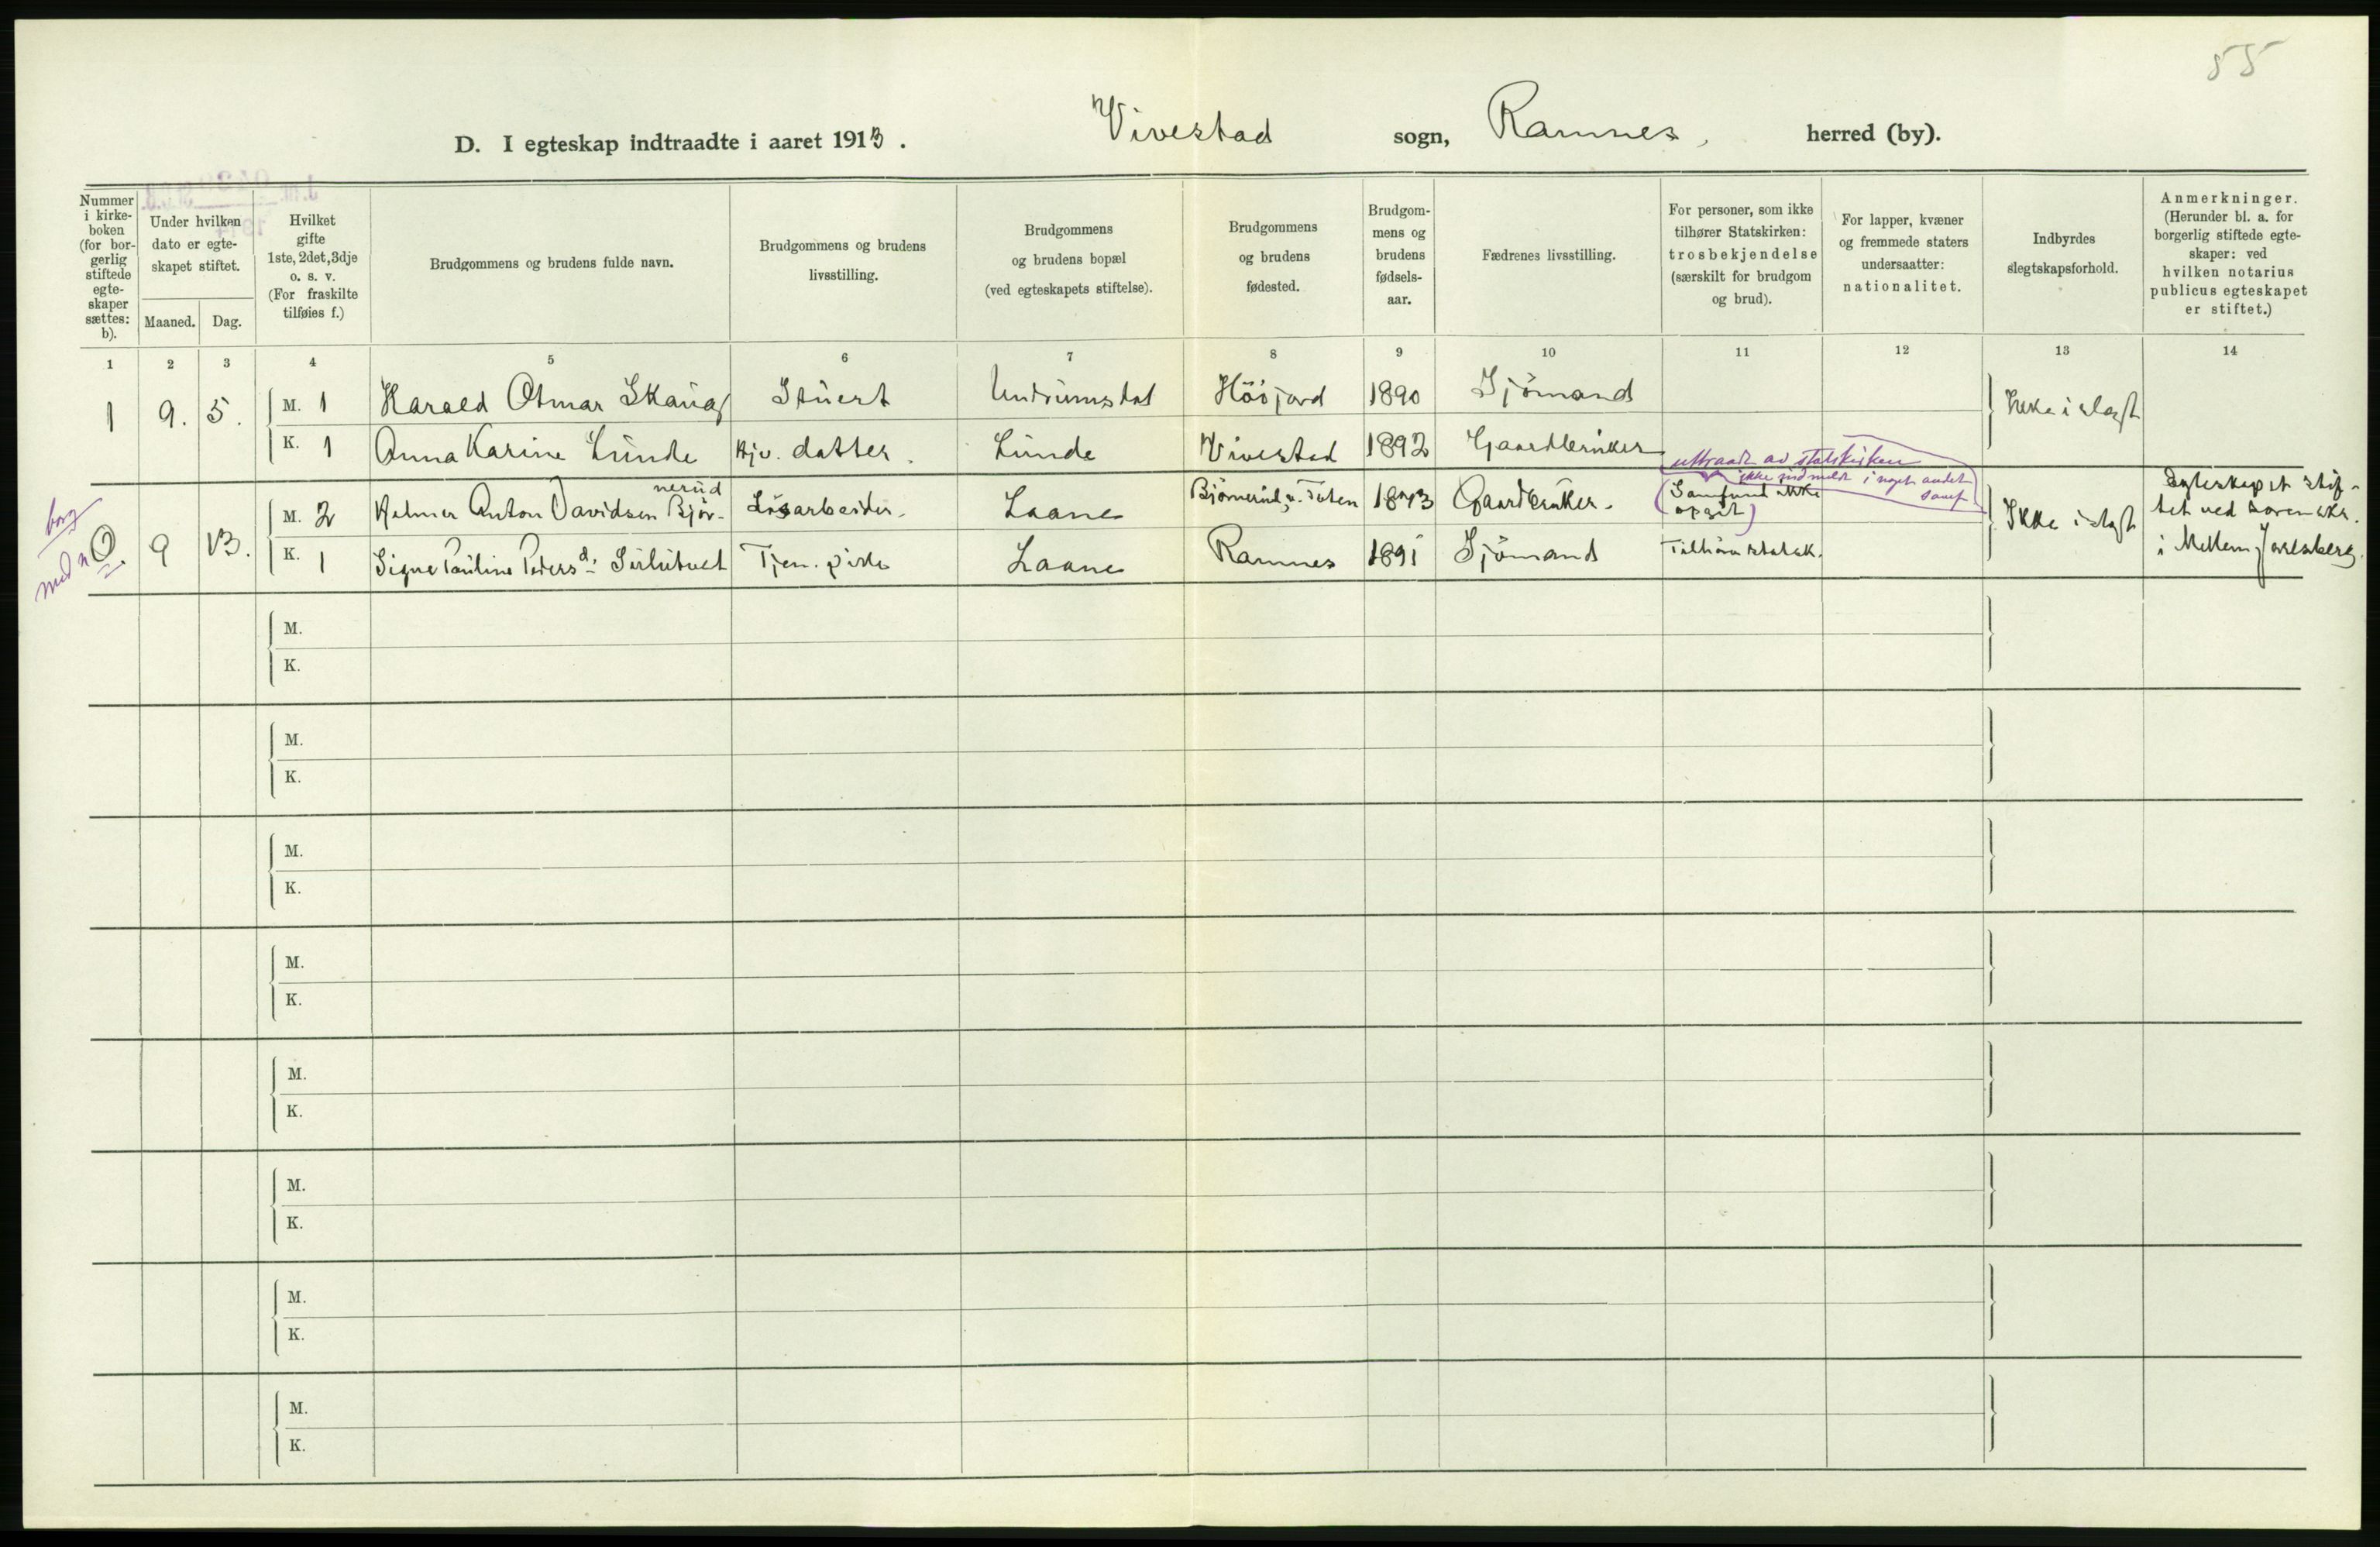 55
D. I egteskap indtraadte i aaret 1913. Vivestad sogn, Ramnes, herred (by).
Nummer i kirke-boken (for bor-gerlig stiftede egte-skaper sættes: b).
Under hvilken dato er egte-skapet stiftet.
Maaned. Dag.
Hvilket gifte 1ste, 2det, 3dje o. s. v. (For fraskilte tilføies f.)
Brudgommens og brudens fulde navn.
Brudgommens og brudens livsstilling.
Brudgommens og brudens bopæl (ved egteskapets stiftelse).
Brudgommens og brudens fødested.
Brudgom-mens og brudens fødsels-aar.
Fædrenes livsstilling.
For personer, som ikke tilhører Statskirken: trosbekjendelse (særskilt for brudgom og brud).
For lapper, kvæner og fremmede staters undersaatter: nationalitet.
Indbyrdes slegtskapsforhold.
Anmerkninger. (Herunder bl. a. for borgerlig stiftede egte-skaper: ved hvilken notarius publicus egteskapet er stiftet.)
1 2 3 4 5 6 7 8 9 10 11 12 13 14
1 9. 5. M. 1 Harald Otmar Skaug Stuert Undrumsdal Höijord 1890 Sjömand
Ikke i slegt
K. 1 Anna Karine Lunde Hjv. datter. Lunde Vivestad 1892 Gaardbruker
uttraadt av statskirken
ikke indmeldt i noget andet
samf.
borg
med n
0. 9 13. M. 2 Helmer Anton Davidsen Björ-
nerud
Lösarbeider. Laane Bjørnerud, v. Toten 1873 Gaardbruker. (Samfund ikke
opgit)
Ikke i slegt
Egteskapet stif-
tet ved sorenskr.
i Mellem Jarlsberg.
K. 1 Signe Pauline Pedersd: Tjen. pike Laane Ramnes 1891 Sjömand Tilhörer statsk.
M.
K.
M.
K.
M.
K.
M.
K.
M.
K.
M.
K.
M.
K.
M.
K.